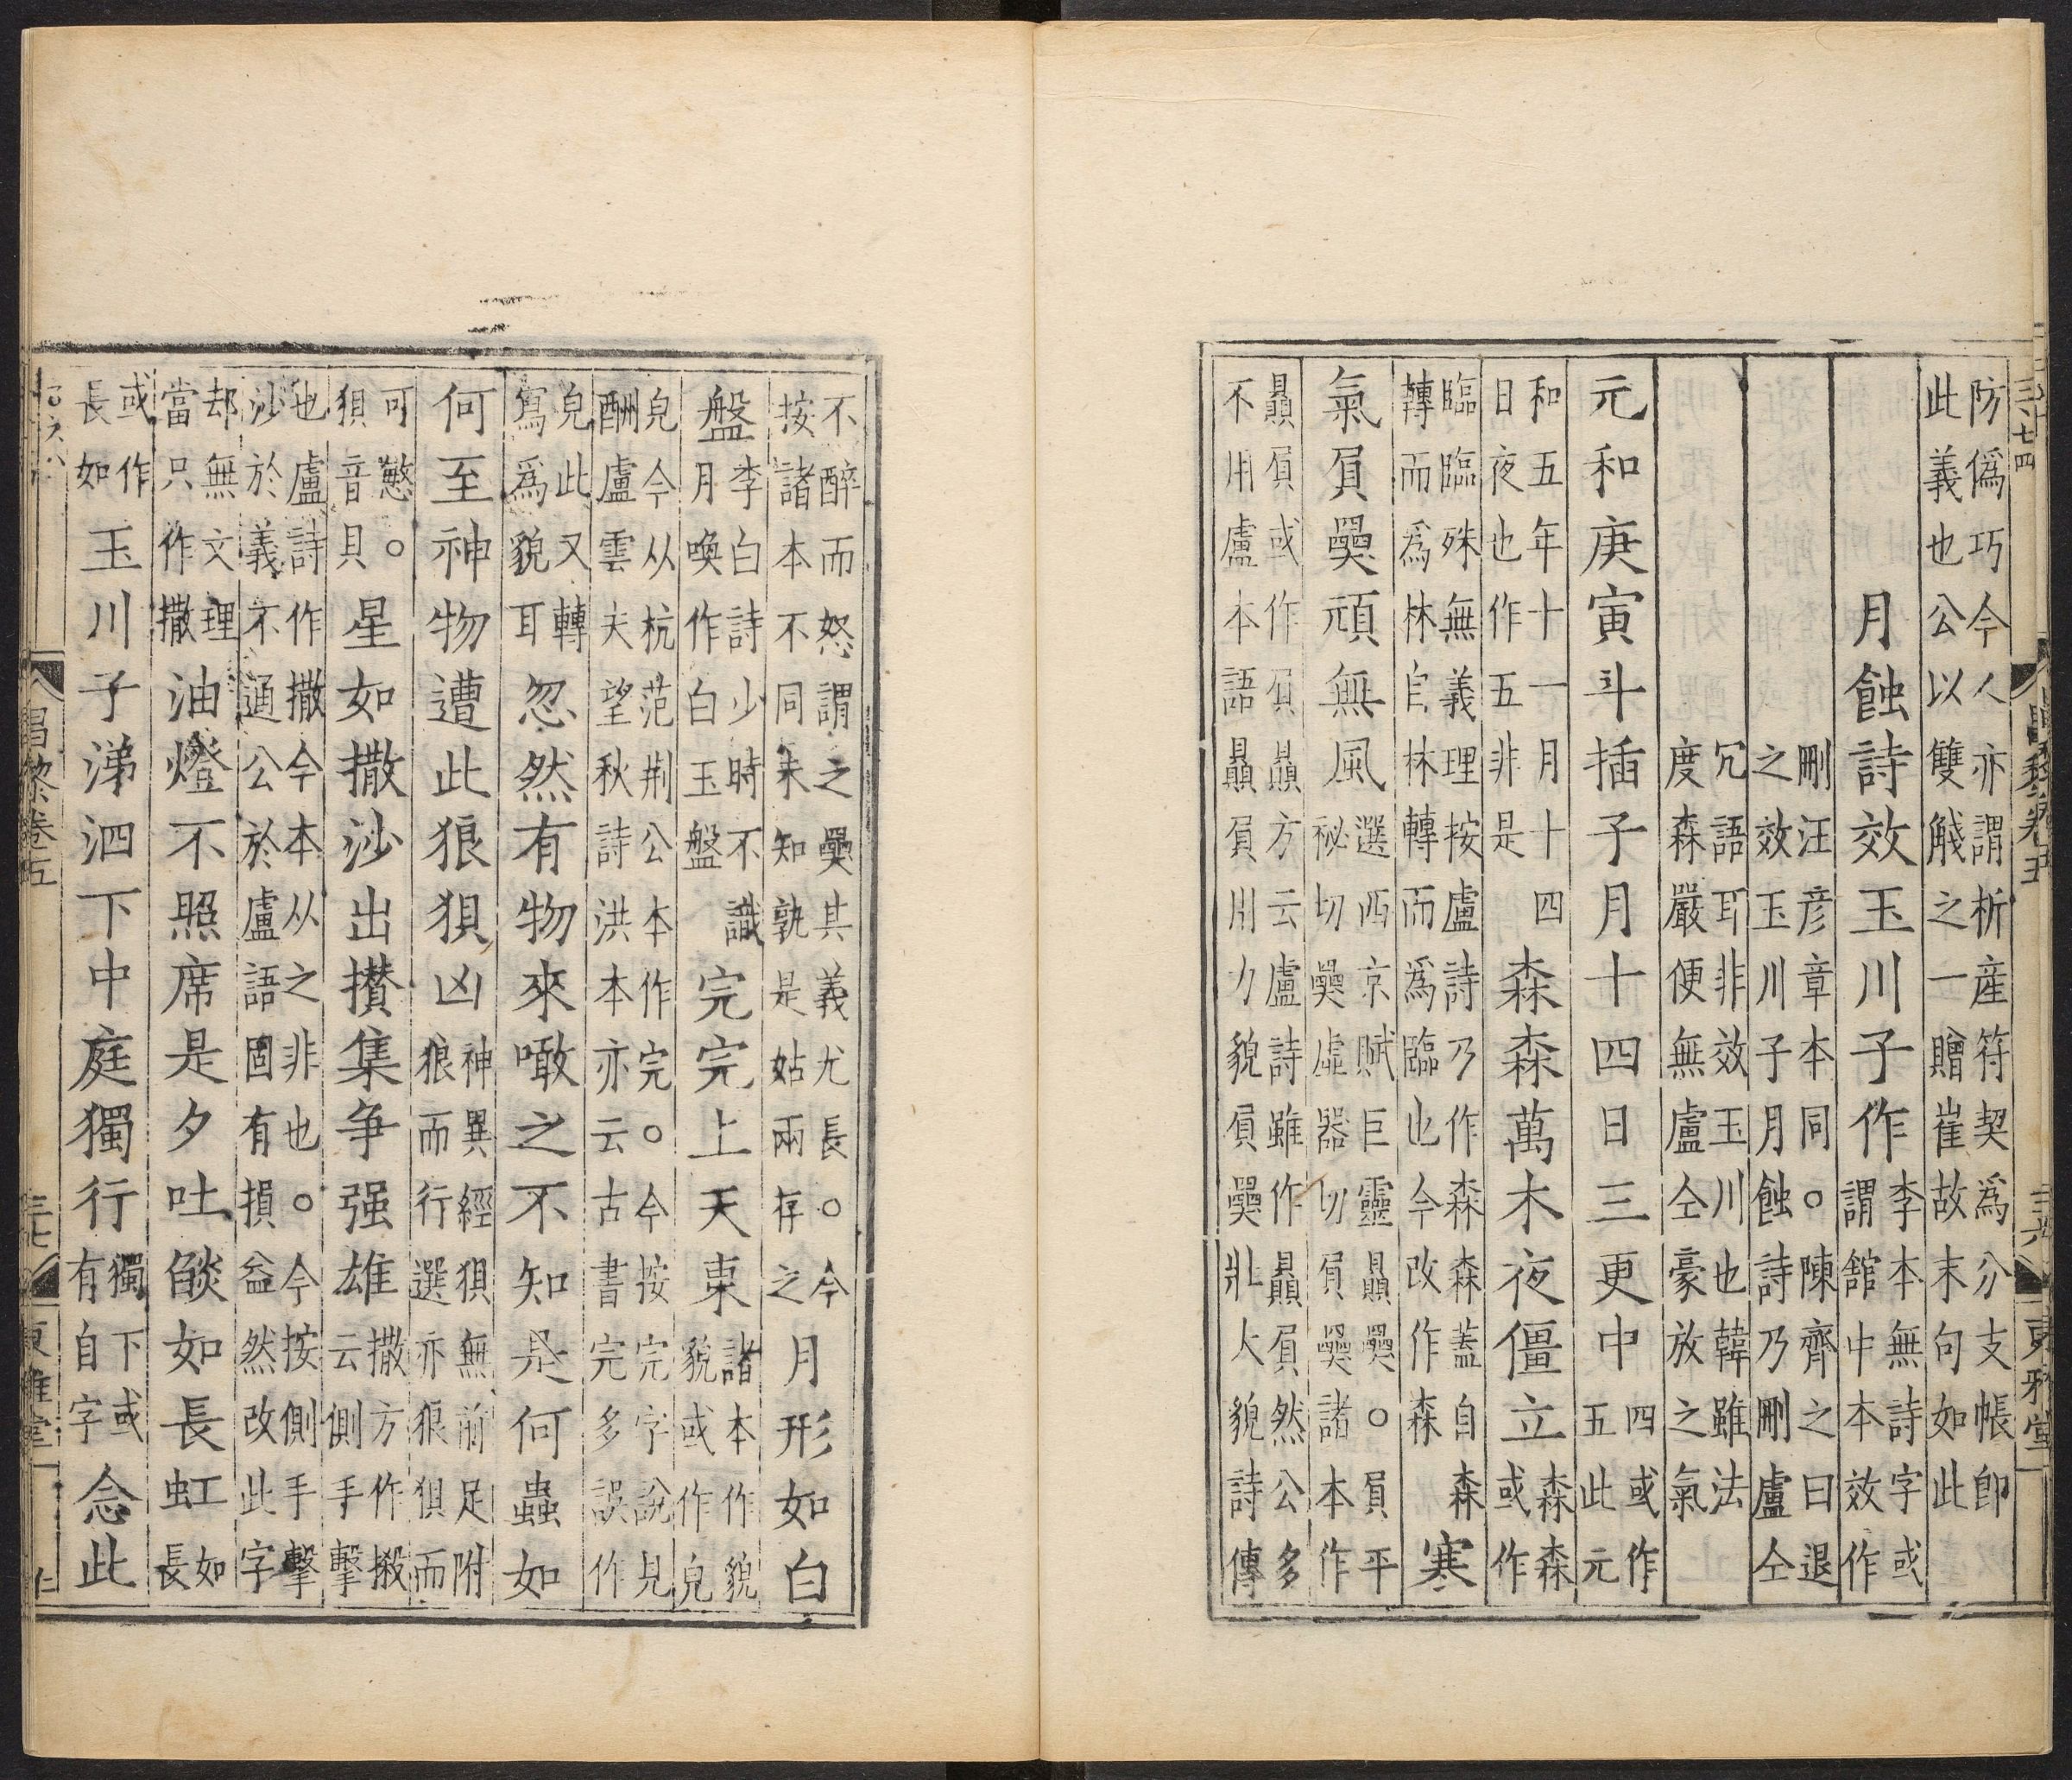 三百七十四
昌黎卷五
三六
東雅堂
防偽巧今人亦謂析産符契爲分支帳即
此義也公以雙觥之一贈崔故末句如此
月蝕詩效玉川子作李本無詩字或謂舘中本效作
刪汪彦章本同○陳齊之曰退
之效玉川子月蝕詩乃刪盧仝
冗語耳非效玉川也韓雖法
度森嚴便無盧仝豪放之氣
元和庚寅斗插子月十四日三更中四或作五此元
和五年十一月十四日夜也作五非是森森萬木夜僵立森森或作
臨臨殊無義理按盧詩乃作森森蓋自森轉而爲林自林轉而爲臨也今改作森寒
氣屓奰頑無風選西京賦巨靈贔奰○屓平祕切奰虛器切屓奰諸本作
贔屓或作屓贔方云盧詩雖作贔屓然公多
不用盧本語贔屓用力貌屓奰壯大貌詩傳
不醉而怒謂之奰其義尤長○今按諸本不同未知孰是姑兩存之月形如白
盤李白詩少時不識月喚作白玉盤完完上天東諸本作貌貌或作皃
皃今从杭范荆公本作完○今按完字說見
酬盧雲夫望秋詩洪本亦云古書完多誤作
皃此又轉寫爲貌耳忽然有物來噉之不知是何蟲如
何至神物遭此狼狽凶神異經狽無前足附狼而行選亦狼狽而
可憗○狽音貝星如撒沙出攅集争强雄撒方作搬云側手擊
也盧詩作撒今本从之非也○今按側手擊
沙於義不通公於盧語固有損益然改此字
却無文理當只作撒油燈不照席是夕吐燄如長虹如長
或作長如玉川子涕泗下中庭獨行獨下或有自字念此
昌黎卷五
三七
東雅堂